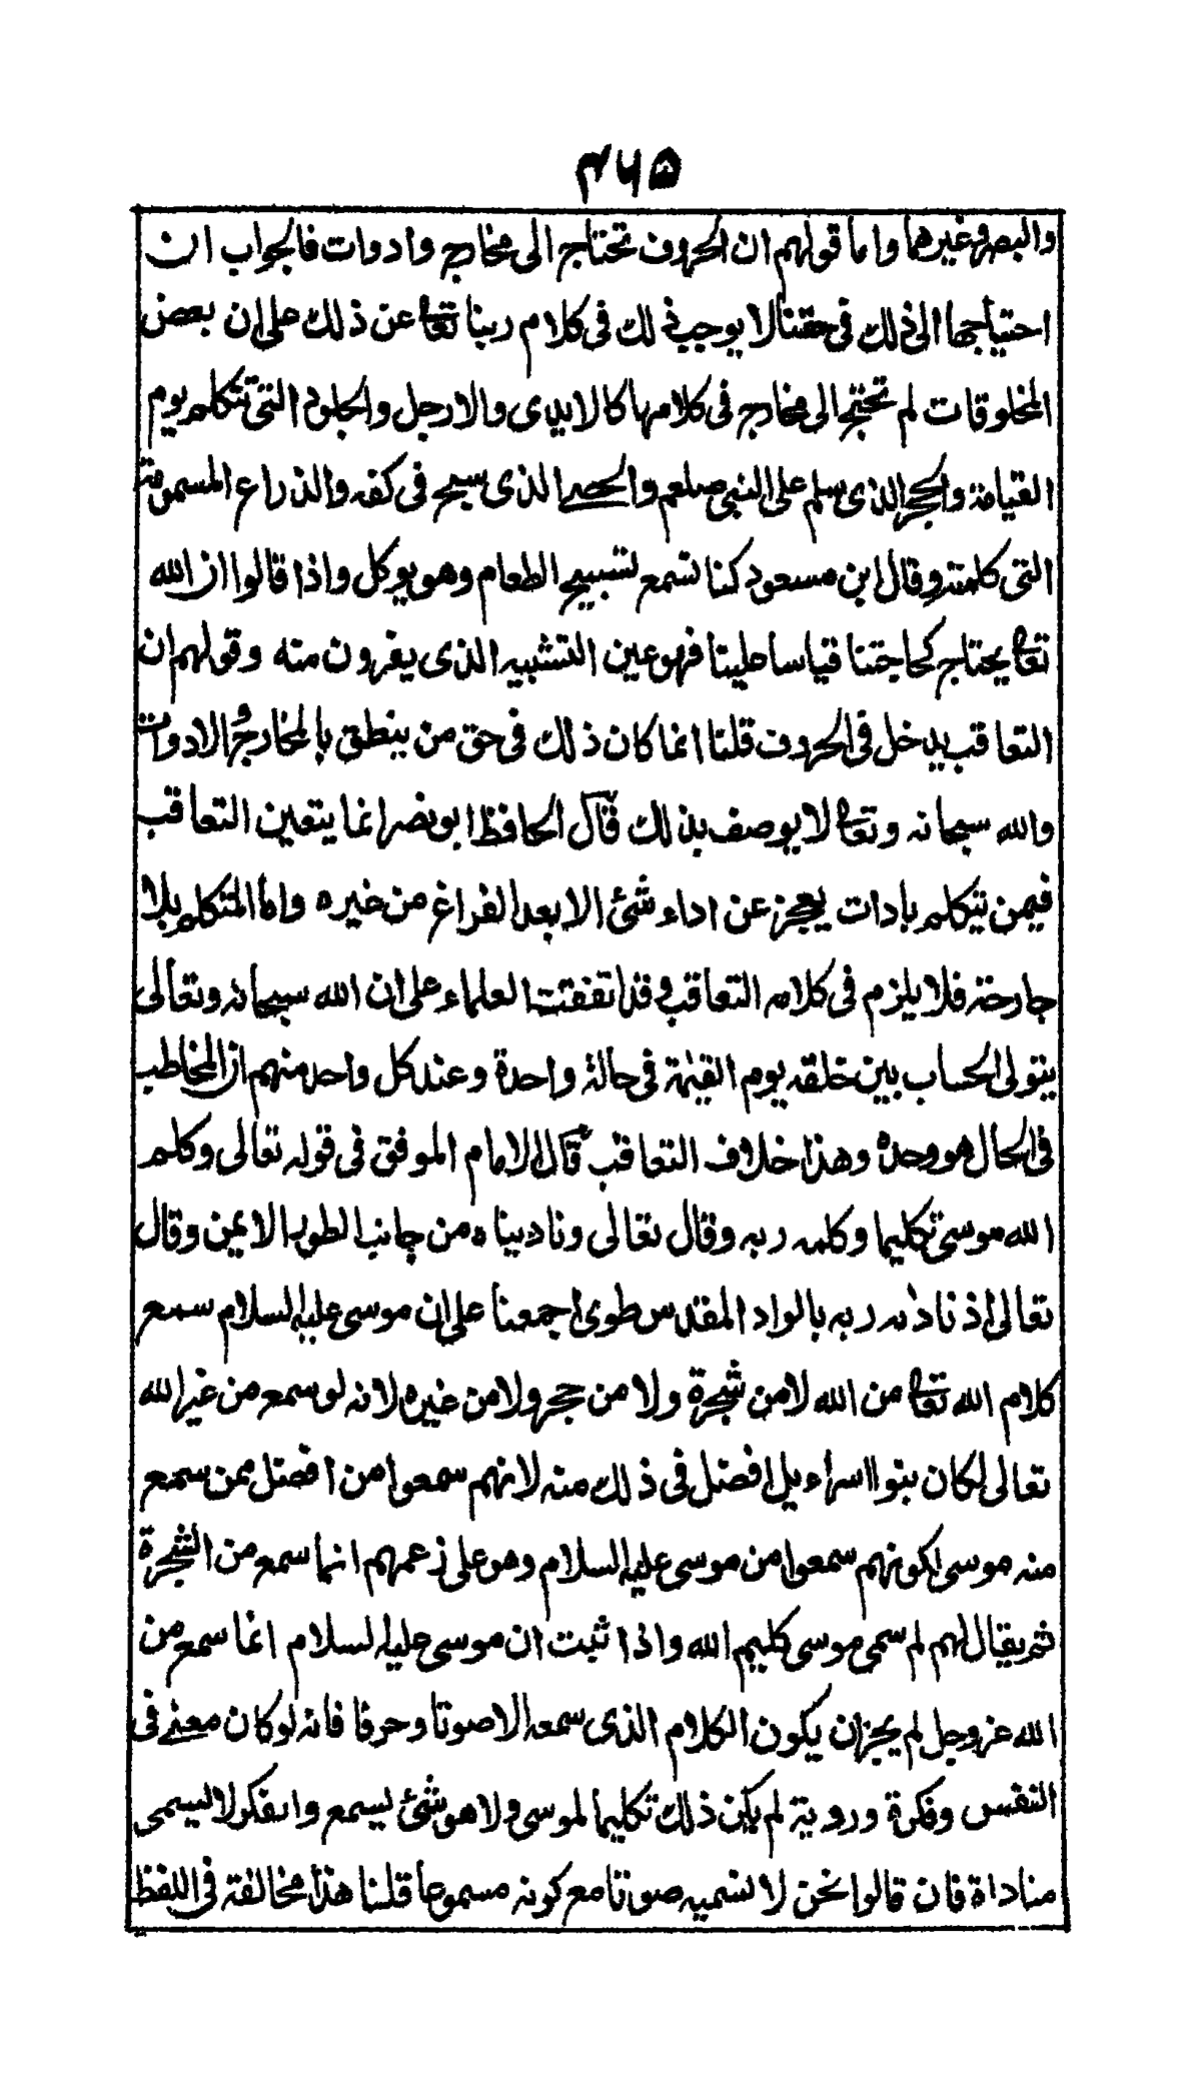 ۴۶۵
والبصر وغيرهما واما قولهم ان الحروف تحتاج الى مخارج وادوات فالجواب ان
احتياجها الى ذلك فى حقنا لا يوجب ذلك فى كلام ربنا تعا عن ذلك على ان بعض
المخلوقات لم تحتج الى مخارج فى كلامها كالايدى والارجل والجلود التى تتكلم يوم
القيامة والحجر الذى سلم على النبى صلعم والحصى الذى سبح فى كفه والذراع المسمومة
التى كلمته وقال ابن مسعود كنا نسمع تسبيح الطعام وهو يوكل واذا قالوا ان الله
تعا يحتاج كحاجتنا قياسا علينا فهو عين التشبيه الذى يفرون منه وقولهم ان
التعاقب يدخل فى الحروف قلنا انما كان ذلك فى حق من ينطق بالمخارج والادوات
والله سبحانه وتعا لا يوصف بذلك قال الحافظ ابو نصر انما يتعين التعاقب
فيمن يتكلم بادات يعجز عن اداء شئ الا بعد الفراغ من غيره واما المتكلم بلا
جارحة فلا يلزم فى كلامه التعاقب وقد اتفقت العلماء على ان الله سبحانه وتعالى
يتولى الحساب بين خلقه يوم القيٰمة فى حالة واحدة وعند كل واحد منهم ان المخاطب
فى الحال هو وحده وهذا خلاف التعاقب قال الامام الموفق فى قوله تعالى وكلم
الله موسى تكليما وكلمه ربه وقال تعالى وناديناه من جانب الطور الايمن وقال
تعالى اذ ناداه ربه بالواد المقدس طوى اجمعنا على ان موسى عليه السلام سمع
كلام الله تعا من الله لا من شجرة ولا من حجر ولا من غيره لانه لو سمع من غير الله
تعالى لكان بنوا اسراءيل افضل فى ذلك منه لانهم سمعوا من افضل ممن سمع
منه موسى لكونهم سمعوا من موسى عليه السلام وهو على زعمهم انما سمع من الشجرة
ثم يقال لهم لم سمى موسى كليم الله واذا ثبت ان موسى عليه السلام انما سمع من
الله عز وجل لم يجز ان يكون الكلام الذى سمعه الا صوتا وحرفا فانه لو كان معنى فى
النفس وفكرة وروية لم يكن ذلك تكليما لموسى ولا هو شئ يسمع والفكر لا يسمى
مناداة فان قالوا نحن لا نسميه صوتا مع كونه مسموعا قلنا هذا مخالفة فى اللفظ